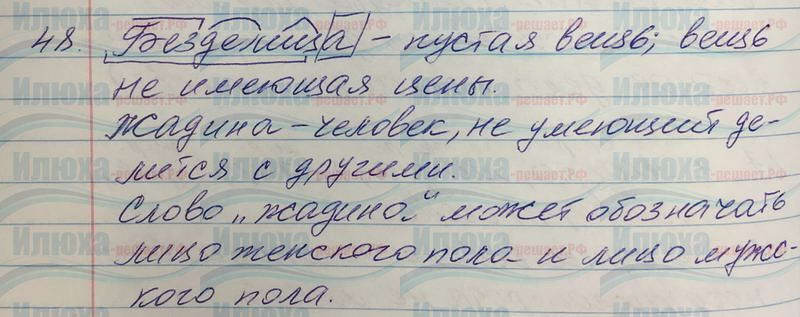 48. Безделица – пустая вещь; вещь
не имеющая цены.
Жадина – человек, не умеющий де-
лится с другими.
Слово „жадина“ может обозначать
лицо женского пола и лицо мужс-
кого пола.
Илюха-решает.РФ